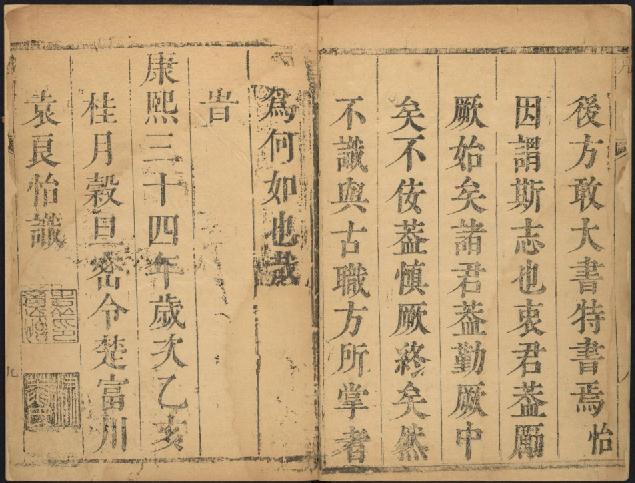 後方敢大書特書焉怡
因謂斯志也衷君葢厲
厥始矣諸君葢勤厥中
矣不佞葢慎厥終矣然
不識與古職方所掌者
為何如也哉
旹
康熙三十四年歲次乙亥
桂月穀旦密令楚富川
袁良怡識